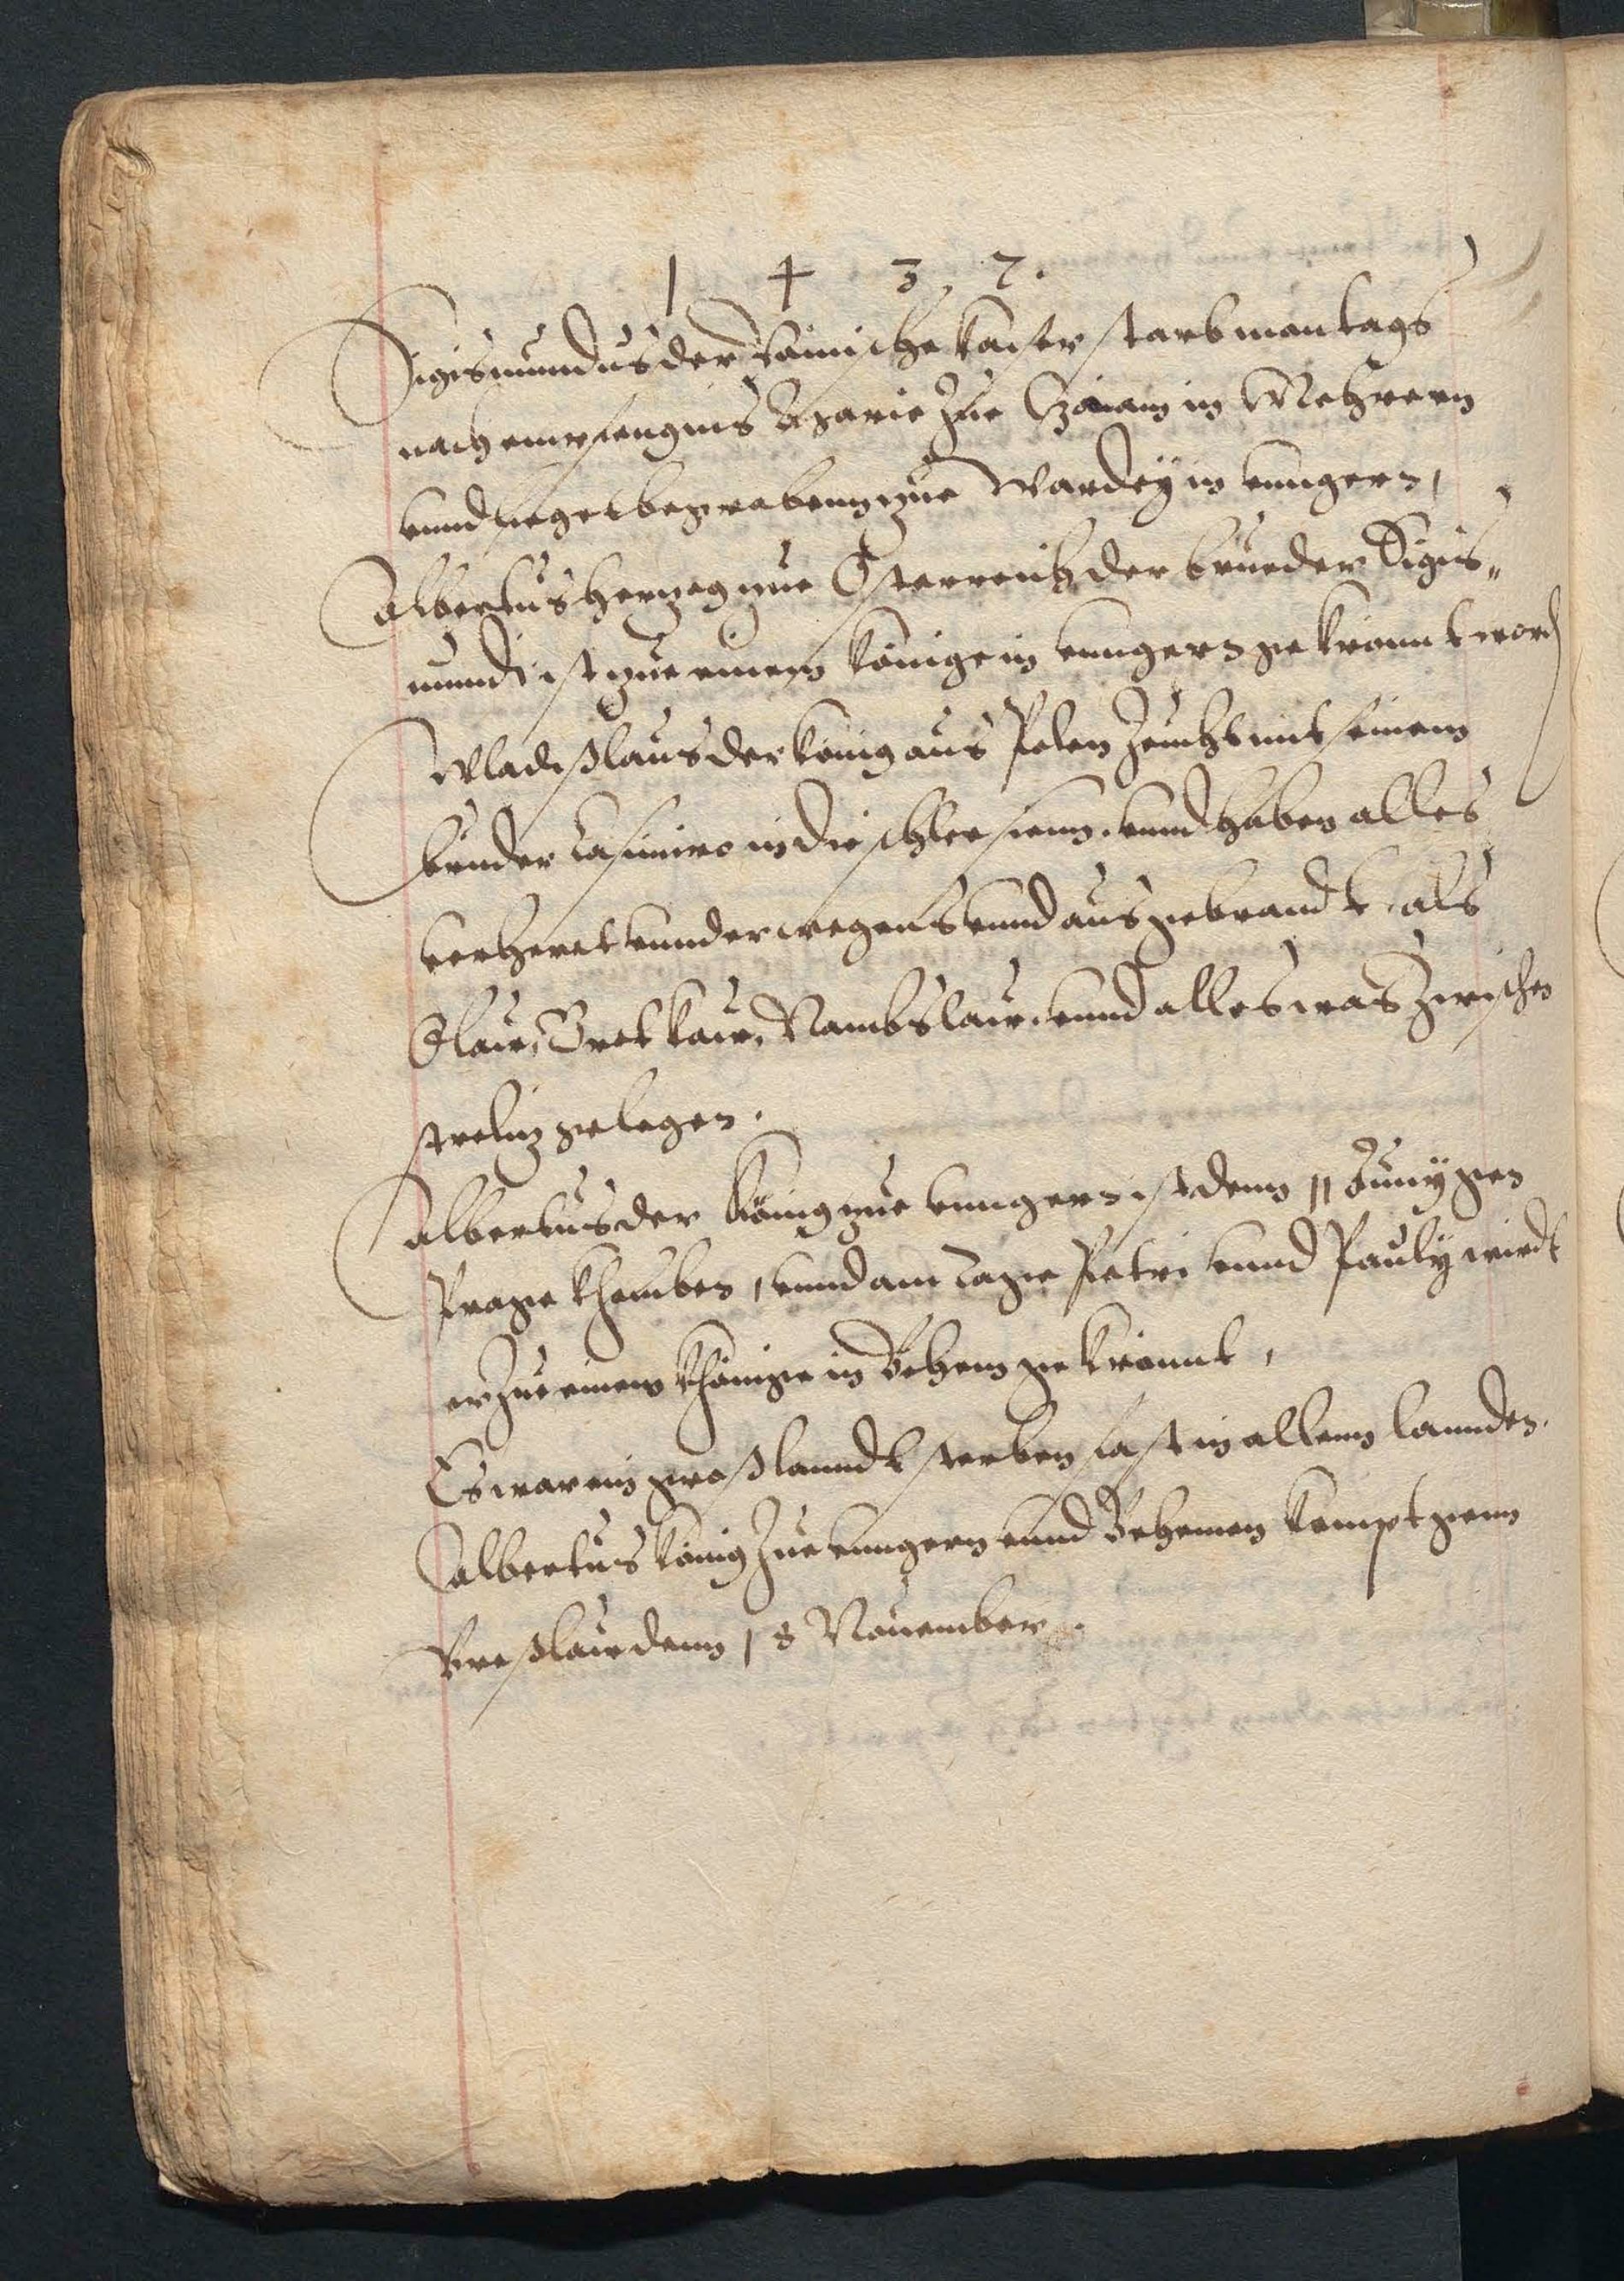 1 4 3 7.
Sigismundus der Römische Kaiser starb montags
nach empfengnis Marie Zue Znaim in Mehrern
vnnd lieget begrabenn zue Wardeÿ in vnngern,
Albertus Hertzog zue Österreich der brueder Sigis„
mundi ist zue einem Könige in vnngern gekrönnt word
Wladißlaus der König aus Polen Zeucht mit seinem
bruder Casimiro in die schlesienn. vnnd haben alles
verheret vnnd vnnd ausgebrandt, als
Olaw, Bretkaw, Nambslaw. vnnd alles was Zwischen
strelin gelegen.
Albertus der König zue vnngern ist denn 11 Junÿ gen
Prage khomben, vnnd am Tage Petri vnnd Paulÿ wirdt
er Zue einem Khönige in Behem gekrönnt,
Es war ein groß lanndt sterben fast in allenn lannden.
Albertus König Zue vnngern vnnd Behemen kompt genn
Breßlaw denn 18 Nouember.